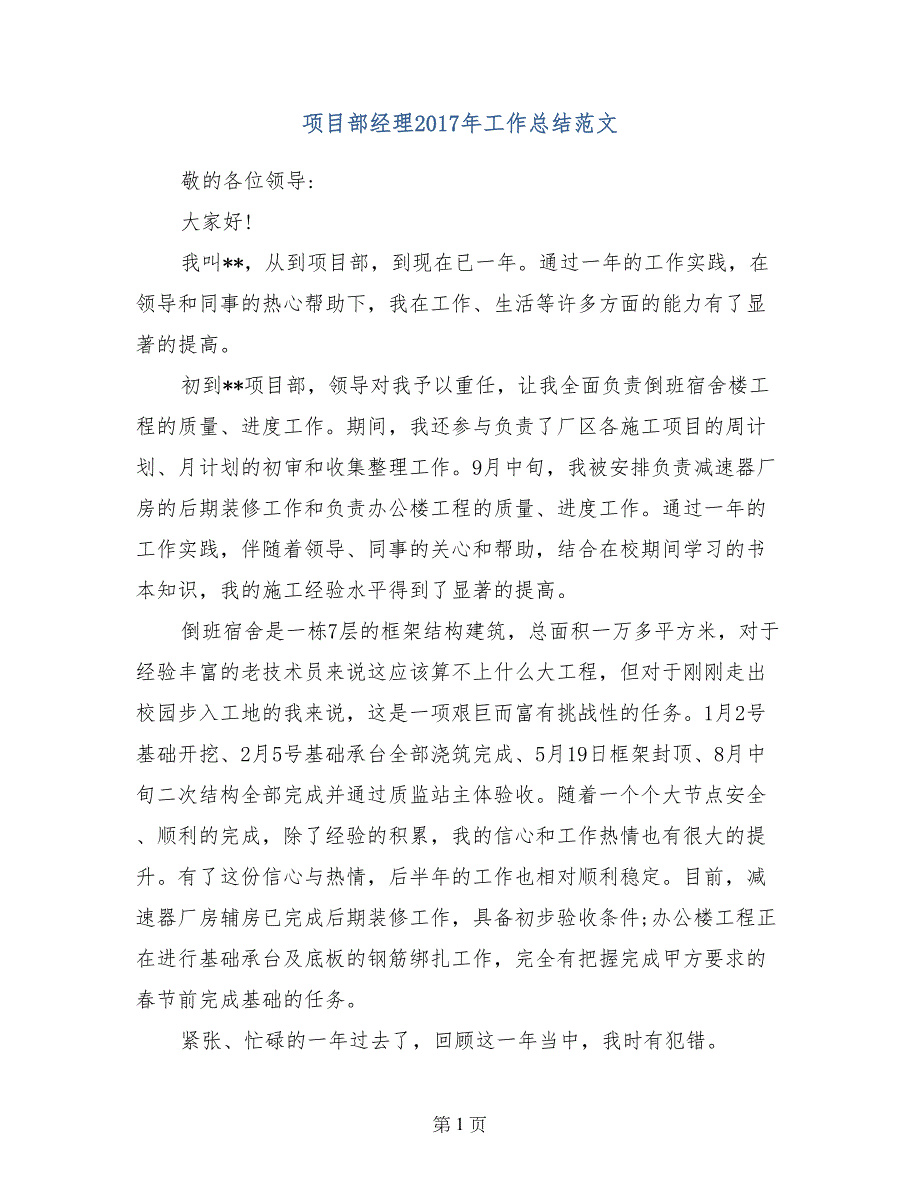 项目部经理2017年工作总结范文
敬的各位领导:
大家好!
我叫**，从到项目部，到现在已一年。通过一年的工作实践，在
领导和同事的热心帮助下，我在工作、生活等许多方面的能力有了显
著的提高。
初到**项目部，领导对我予以重任，让我全面负责倒班宿舍楼工
程的质量、进度工作。期间，我还参与负责了厂区各施工项目的周计
划、月计划的初审和收集整理工作。9月中旬，我被安排负责减速器厂
房的后期装修工作和负责办公楼工程的质量、进度工作。通过一年的
工作实践，伴随着领导、同事的关心和帮助，结合在校期间学习的书
本知识，我的施工经验水平得到了显著的提高。
倒班宿舍是一栋7层的框架结构建筑，总面积一万多平方米，对于
经验丰富的老技术员来说这应该算不上什么大工程，但对于刚刚走出
校园步入工地的我来说，这是一项艰巨而富有挑战性的任务。1月2号
基础开挖、2月5号基础承台全部浇筑完成、5月19日框架封顶、8月中
旬二次结构全部完成并通过质监站主体验收。随着一个个大节点安全
、顺利的完成，除了经验的积累，我的信心和工作热情也有很大的提
升。有了这份信心与热情，后半年的工作也相对顺利稳定。目前，减
速器厂房辅房已完成后期装修工作，具备初步验收条件;办公楼工程正
在进行基础承台及底板的钢筋绑扎工作，完全有把握完成甲方要求的
春节前完成基础的任务。
紧张、忙碌的一年过去了，回顾这一年当中，我时有犯错。
第 1 页